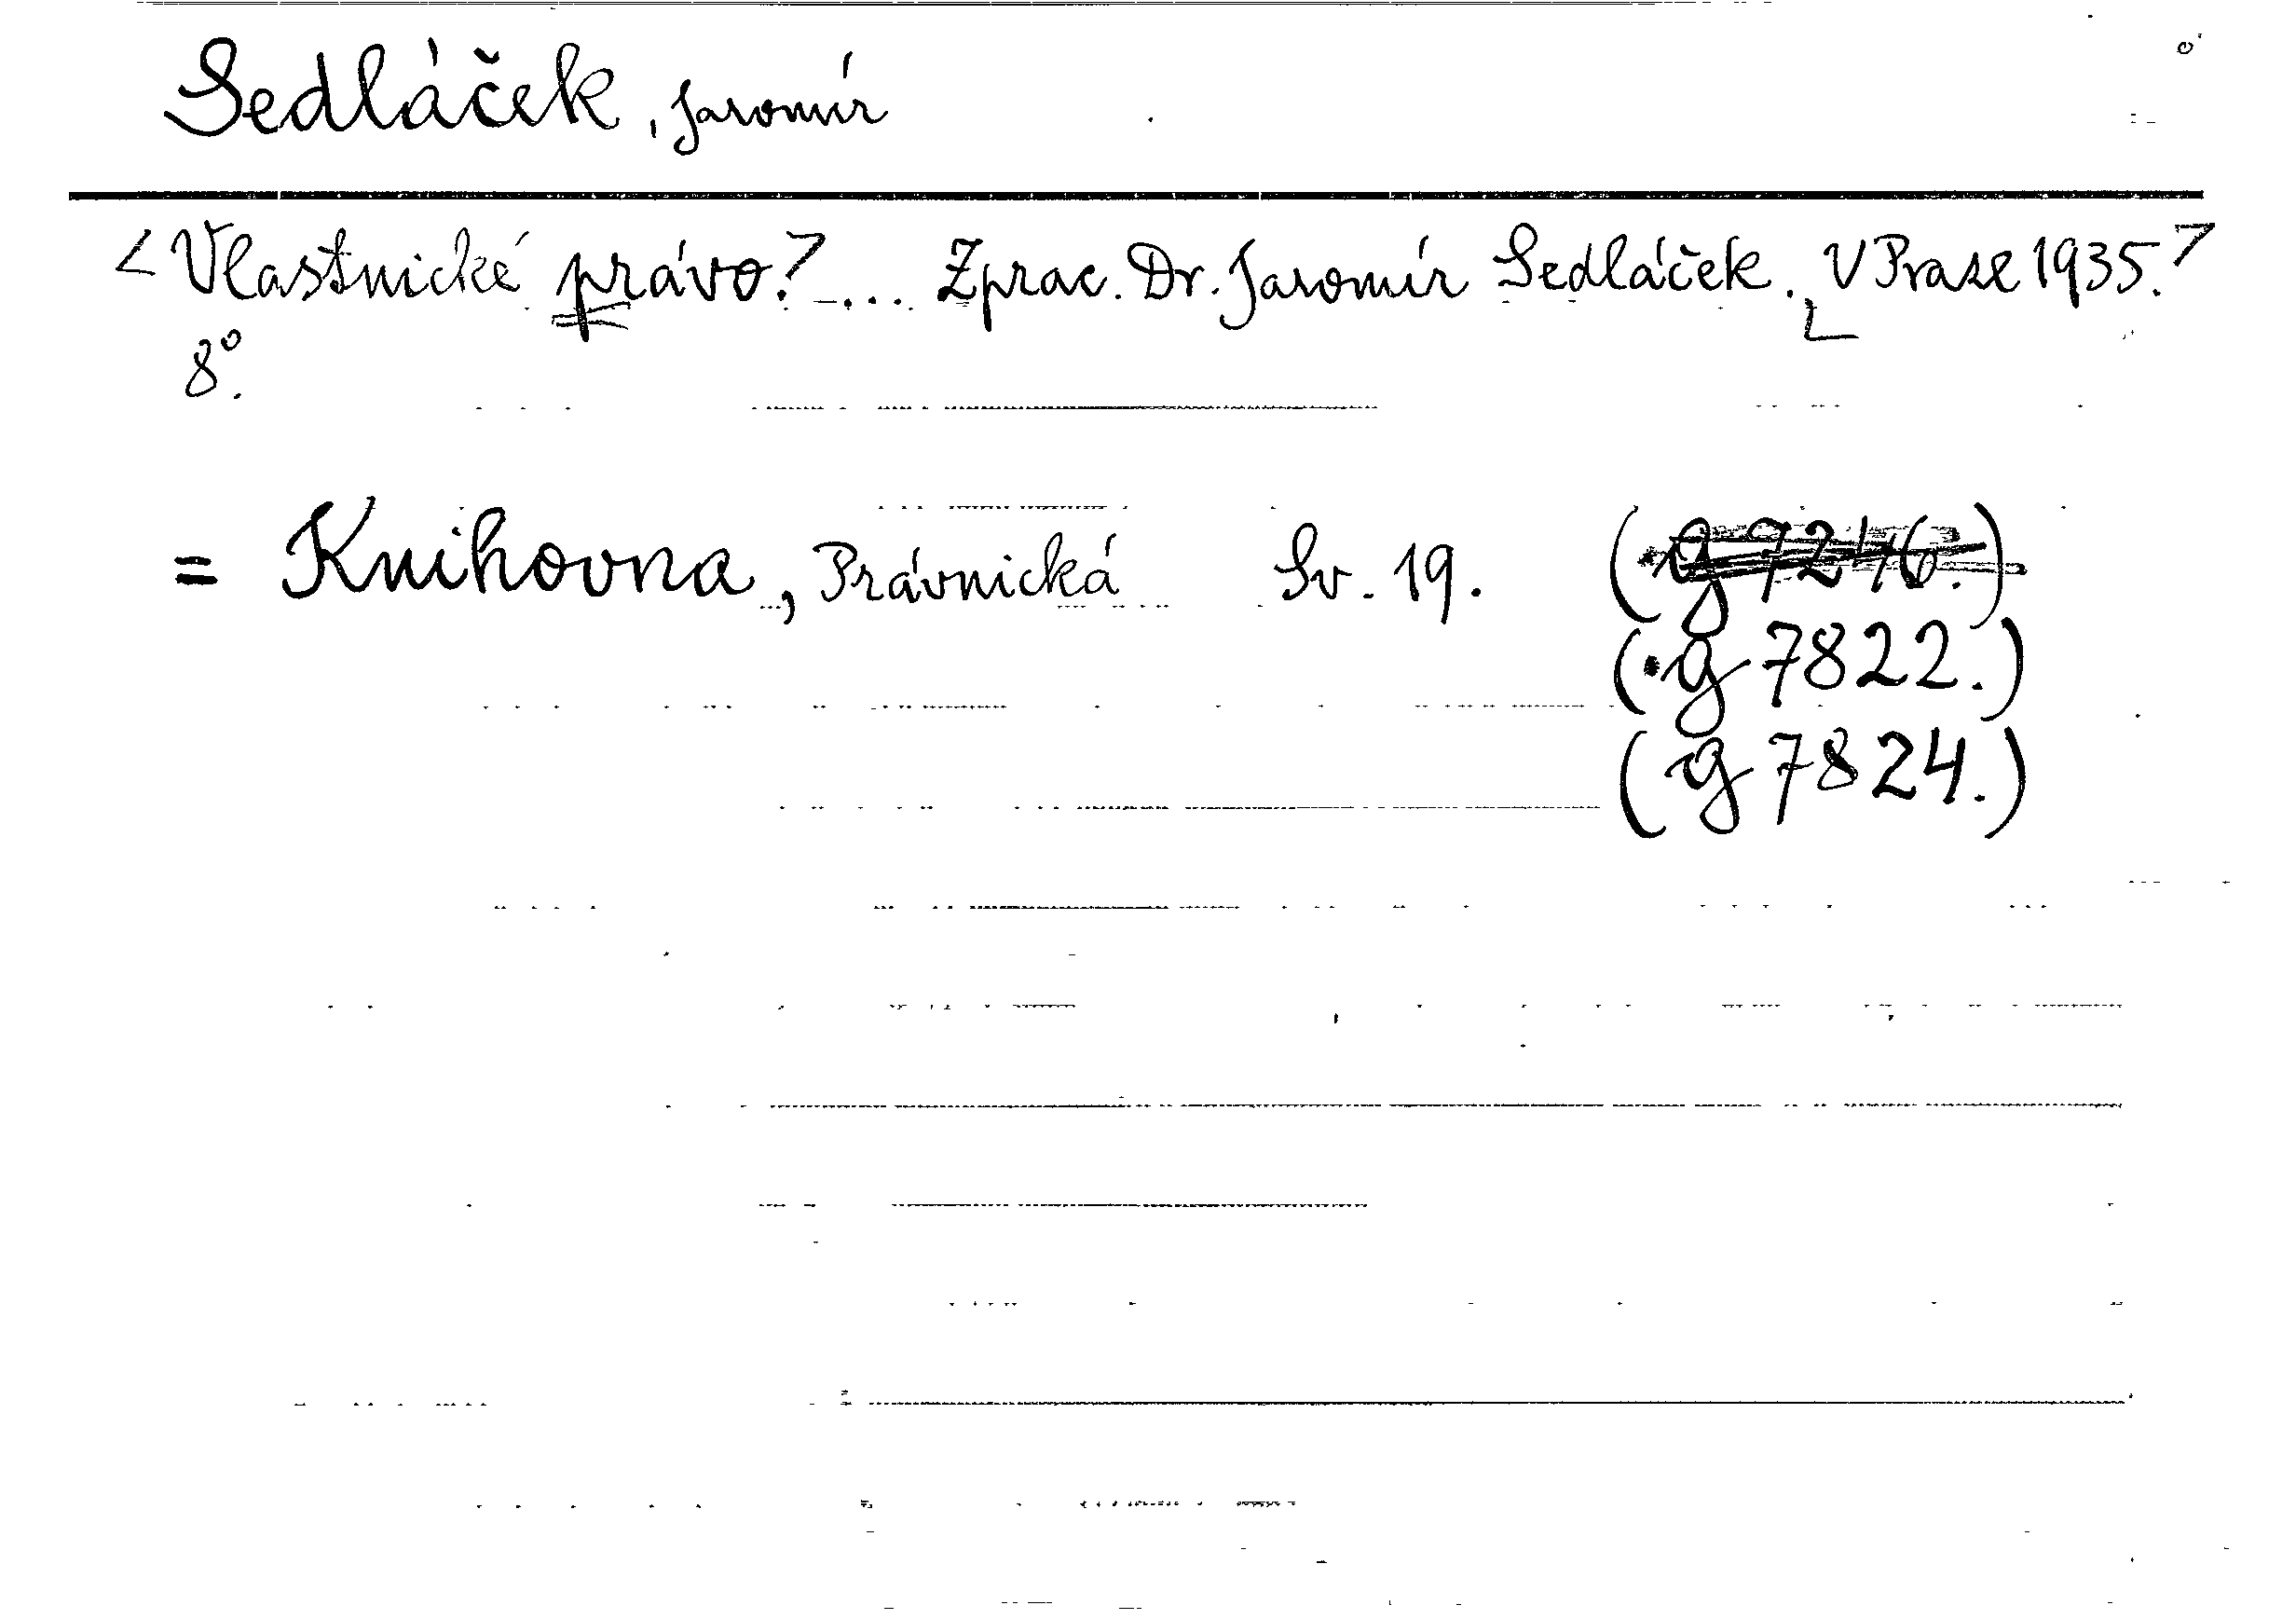 Sedláček, Jaromír
<Vlastnické právo.> ... Zprac. Dr. Jaromír Sedláček. V Praze 1935.>
8°.
= Knihovna, Právnická Sv. 19. (g 7246.)
(g 7822.)
(g 7824.)